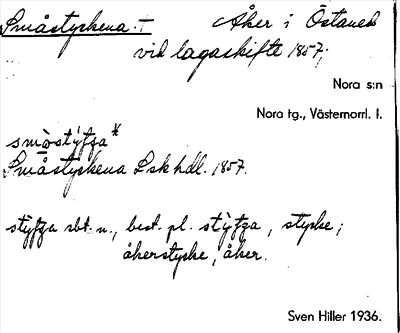 Småstyckena. † Åker i Östanek
vid lagaskifte 1857;
Nora s:n
Nora tg., Västernorrl. l.
småstyʃʒa*
Småstyckena Lsk hdl. 1857.
styʃʒa sbt. n., best. pl. styʃʒa, stycke;
åkerstycke, åker.
Sven Hiller 1936.